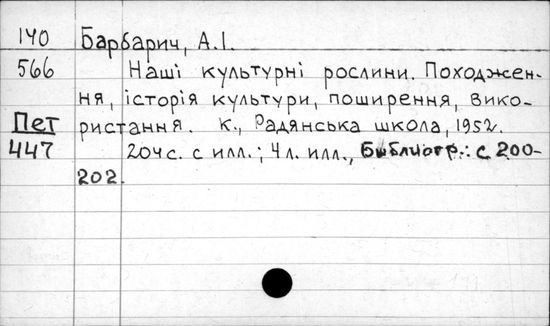 140 Барбарич, А.І.
566 Наші культурні рослини. Походжен-
ня, історія культури, поширення, вико-
Пет ристання. К., Радянська школа, 1952.
447 204 с. с илл.; 4 л. илл., Библиогр.: с. 200-
202.